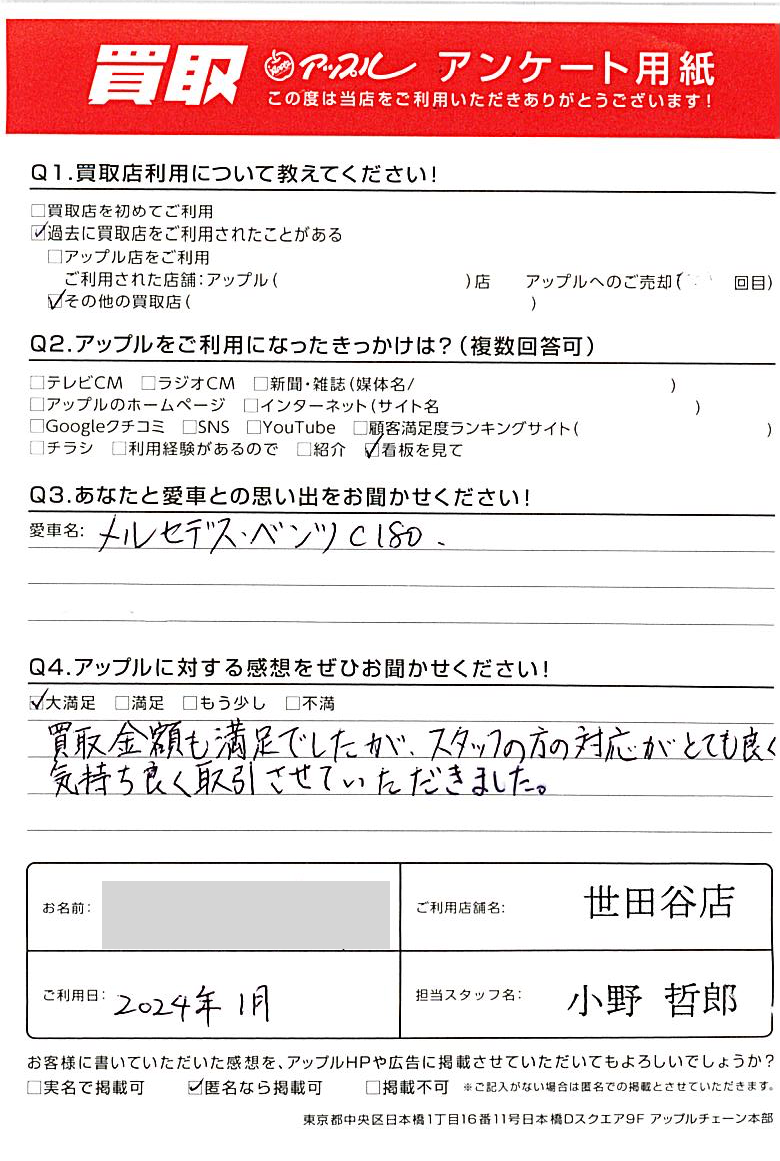 買取 アップル アンケート用紙
この度は当店をご利用いただきありがとうございます!
Q1.買取店利用について教えてください!
□買取店を初めてご利用
☑過去に買取店をご利用されたことがある
□アップル店をご利用
ご利用された店舗:アップル( )店 アップルへのご売却( 回目)
☑その他の買取店( )
Q2.アップルをご利用になったきっかけは?(複数回答可)
□テレビCM □ラジオCM □新聞・雑誌(媒体名/ )
□アップルのホームページ □インターネット(サイト名 )
□Googleクチコミ □SNS □YouTube □顧客満足度ランキングサイト( )
□チラシ □利用経験があるので □紹介 ☑看板を見て
Q3.あなたと愛車との思い出をお聞かせください!
愛車名: メルセデス・ベンツ C180.
Q4.アップルに対する感想をぜひお聞かせください!
☑大満足 □満足 □もう少し □不満
買取金額も満足でしたが、スタッフの方の対応がとても良く
気持ち良く取引させていただきました。
お名前: ご利用店舗名: 世田谷店
ご利用日: 2024年1月 担当スタッフ名: 小野 哲郎
お客様に書いていただいた感想を、アップルHPや広告に掲載させていただいてもよろしいでしょうか?
□実名で掲載可 ☑匿名なら掲載可 □掲載不可 ※ご記入がない場合は匿名での掲載とさせていただきます。
東京都中央区日本橋1丁目16番11号日本橋Dスクエア9F アップルチェーン本部